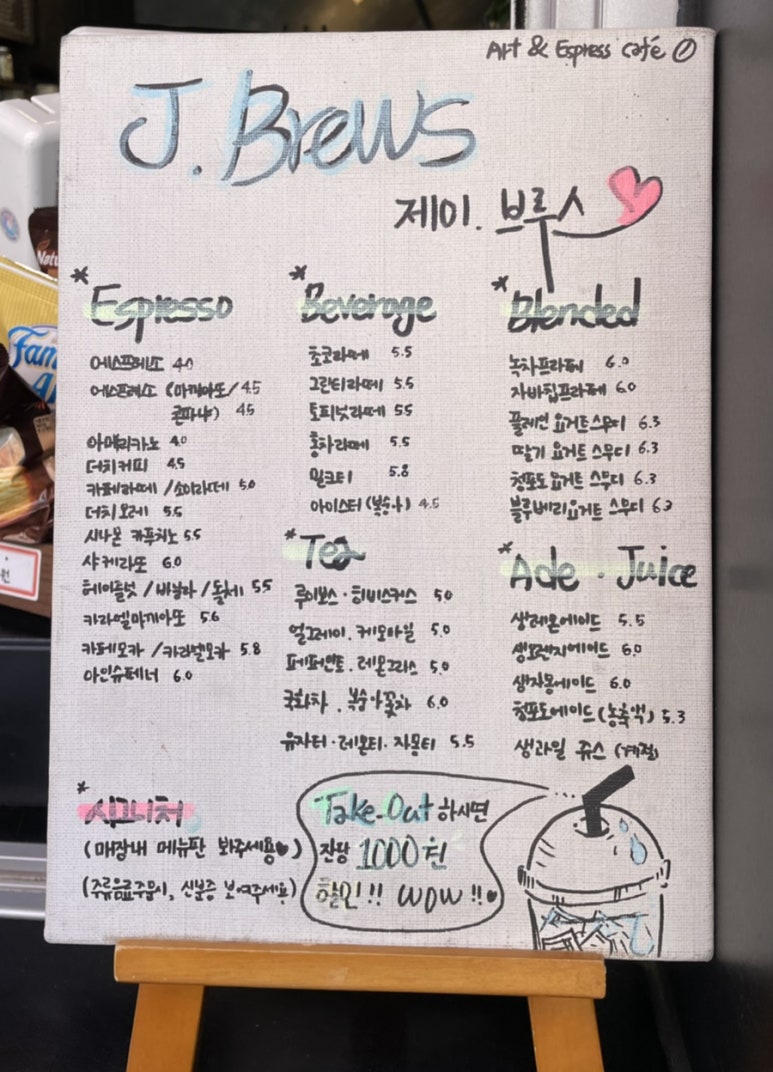 Art & Espress café
J. Brews
제이. 브루스
*Espresso
에스프레소 4.0
에스프레소 (마끼아또/ 4.5
콘파냐) 4.5
아메리카노 4.0
더치커피 4.5
카페라떼 /소이라떼 5.0
더치오레 5.5
시나몬 카푸치노 5.5
샤케라또 6.0
헤이즐넛 /바닐라 /돌체 5.5
카라멜마끼아또 5.6
카페모카 /카라멜모카 5.8
아인슈페너 6.0
*시그니처
(매장내 메뉴판 봐주세용♥)
(주류음료주문시, 신분증 보여주세용)
*Beverage
초코라떼 5.5
그린티라떼 5.5
토피넛라떼 5.5
홍차라떼 5.5
밀크티 5.8
아이스티 (복숭아) 4.5
*Tea
루이보스 · 히비스커스 5.0
얼그레이 . 케모마일 5.0
페퍼민트 . 레몬그라스 5.0
국화차 . 복숭아꽃차 6.0
유자티 · 레몬티 · 자몽티 5.5
*Blended
녹차프라페 6.0
자바칩프라페 6.0
플레인 요거트스무디 6.3
딸기 요거트 스무디 6.3
청포도 요거트 스무디 6.3
블루베리 요거트 스무디 6.3
*Ade · Juice
생레몬에이드 5.5
생오렌지에이드 6.0
생자몽에이드 6.0
청포도에이드 (농축액) 5.3
생과일 쥬스 (계절)
Take-Out 하시면
잔당 1000원
할인!! WOW!!♥